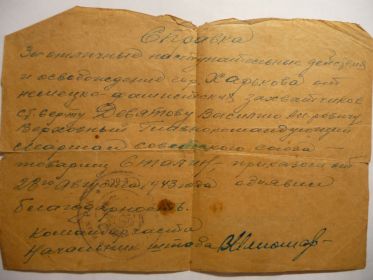 Справка
За отличные наступательные действия
и освобождение гор. Харькова от
немецко-фашистских захватчиков
Девятову Василию
Верховный Главнокомандующий
Маршал Советского Союза
товарищ Сталин, приказом от
23го Августа 1943 года объявил
благодарность.
Командир части
Начальник штаба